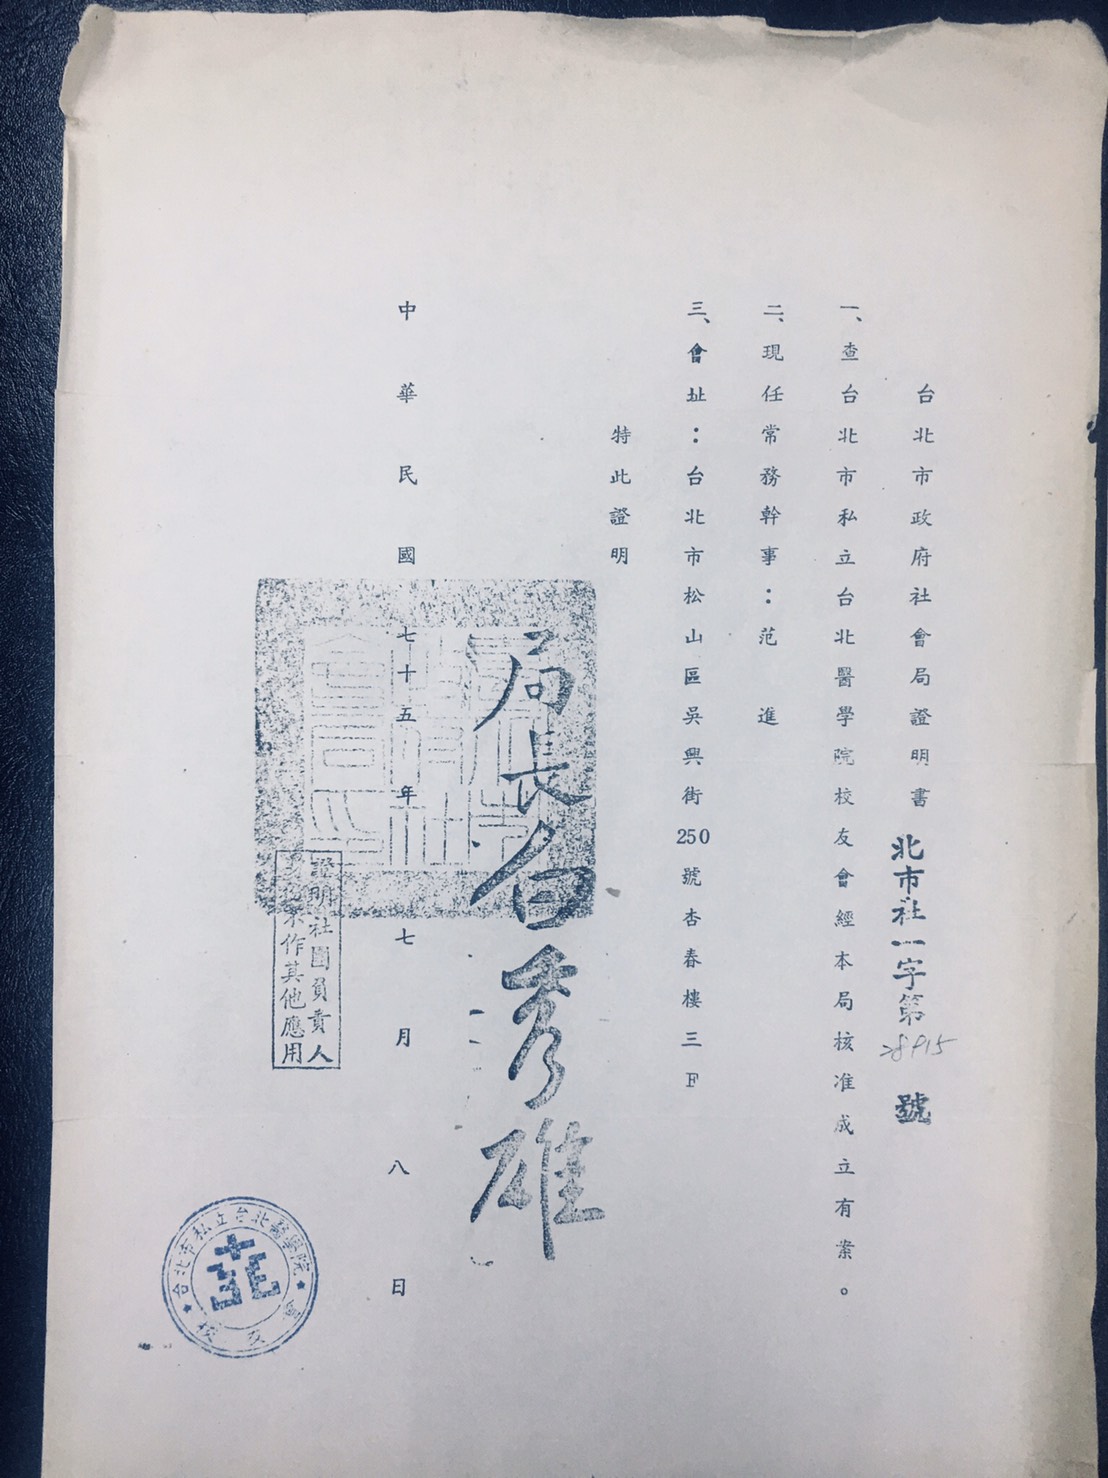 台北市政府社會局證明書 北市社一字第28915號
一、查台北市私立台北醫學院校友會經本局核准成立有案。
二、現任常務幹事：范 進
三、會址：台北市松山區吳興街250號杏春樓三F
特此證明
局長白秀雄
中華民國七十五年七月八日
證明社團負責人
不作其他應用
台北市私立台北醫學院
校友會